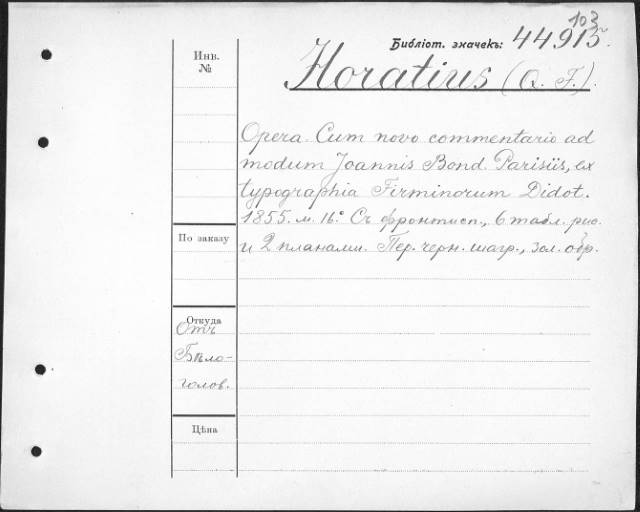 103
Библіот. значекъ: 44915.
Инв. №
Horatius (Q. F.).
Opera. Cum novo commentario ad
modum Joannis Bond. Parisiis, ex
typographia Firminorum Didot.
1855. м. 16° Съ фронтисп., 6 табл. рис.
и 2 планами. Пер. черн. шагр., зол. обр.
По заказу
Откуда
Отъ
Бѣло-
голов.
Цѣна